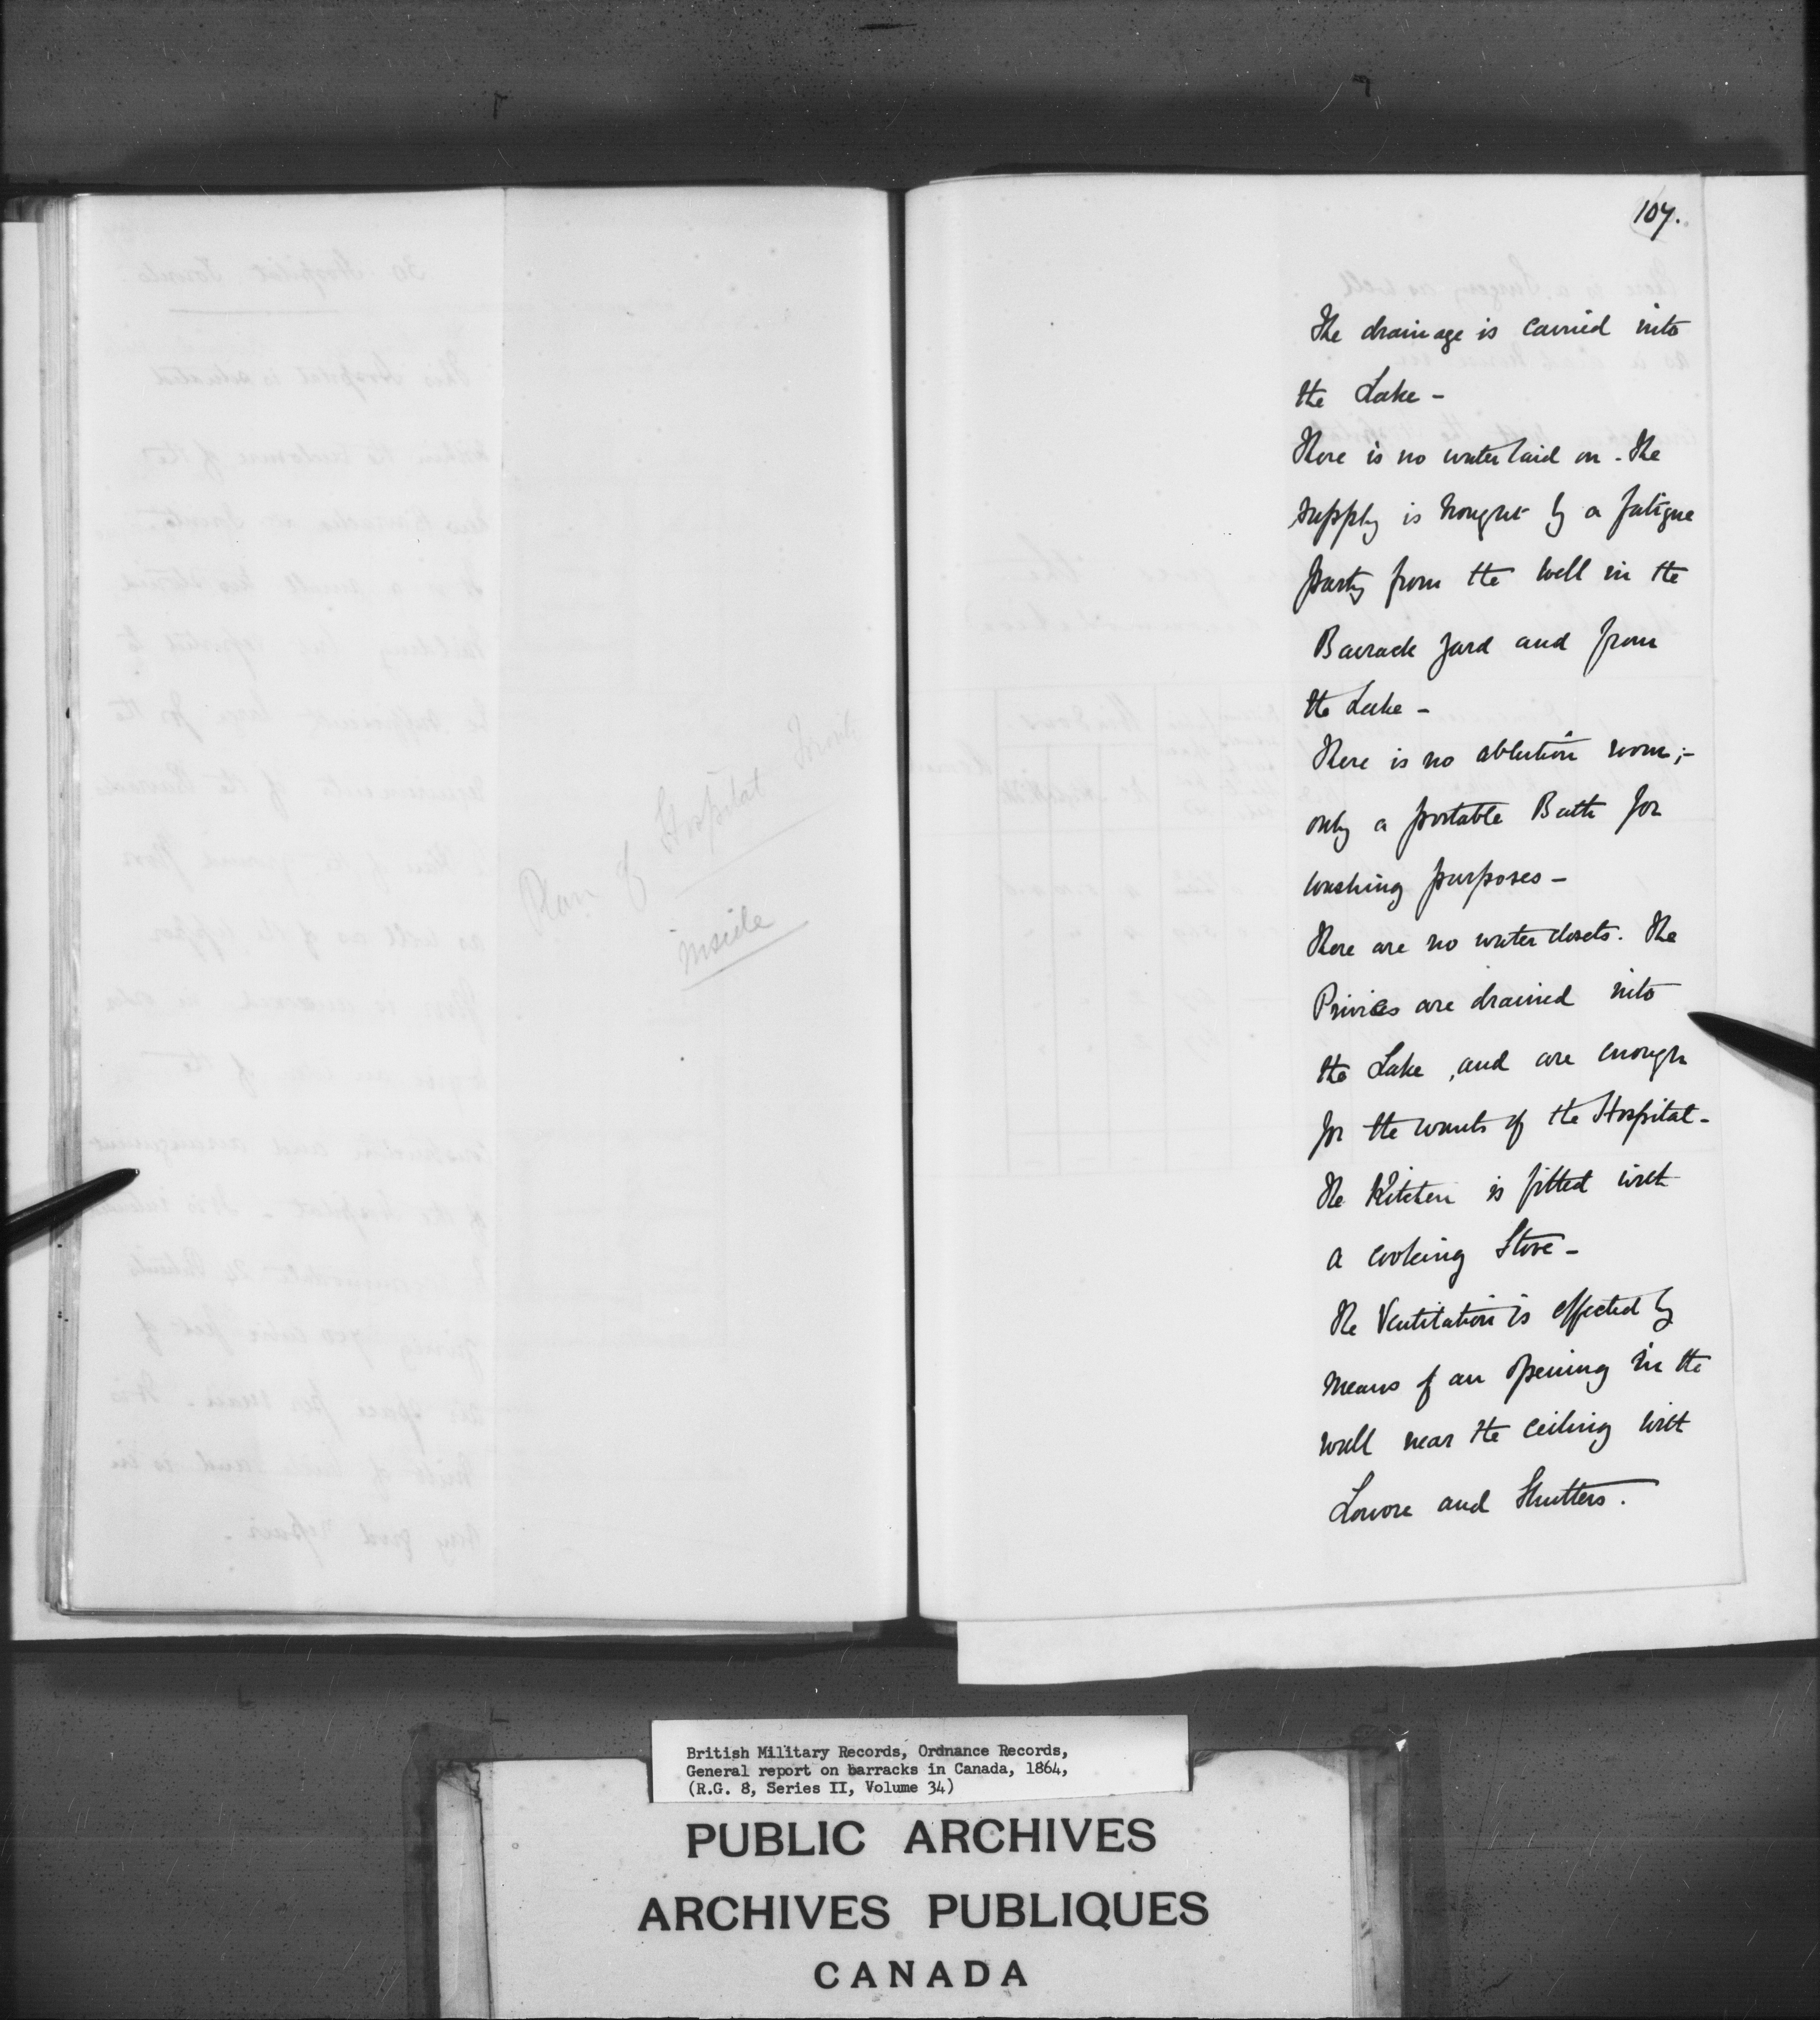 Plan of Hospital Toronto
inside
107.
The drainage is carried into
the Lake -
There is no water laid on - The
supply is brought by a fatigue
party from the well in the
Barrack Yard and from
the Lake -
There is no ablution room ; -
only a portable Bath for
washing purposes -
There are no water closets. The
Privies are drained into
the Lake , and are enough
for the wants of the Hospital -
The Kitchen is fitted with
a cooking Stove -
The Ventilation is effected by
means of an opening in the
wall near the ceiling with
Louvre and Shutters .
British Military Records, Ordnance Records,
General report on barracks in Canada, 1864,
(R.G. 8, Series II, Volume 34)
PUBLIC ARCHIVES
ARCHIVES PUBLIQUES
CANADA